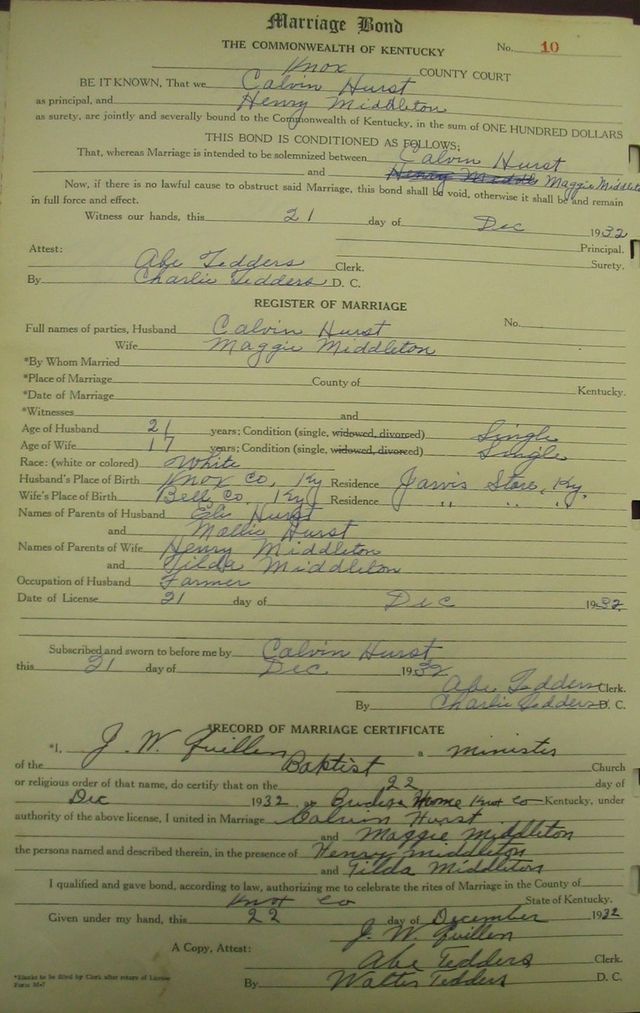 Marriage Bond
THE COMMONWEALTH OF KENTUCKY No. 10
Knox COUNTY COURT
BE IT KNOWN, That we Calvin Hurst
as principal, and Henry Middleton
as surety, are jointly and severally bound to the Commonwealth of Kentucky, in the sum of ONE HUNDRED DOLLARS
THIS BOND IS CONDITIONED AS FOLLOWS:
That, whereas Marriage is intended to be solemnized between Calvin Hurst
and Henry Middle Maggie Middleton
Now, if there is no lawful cause to obstruct said Marriage, this bond shall be void, otherwise it shall be and remain
in full force and effect.
Witness our hands, this 21 day of Dec 1932
Principal.
Attest: Surety.
Abe Tedders Clerk.
By Charlie Tedders D. C.
REGISTER OF MARRIAGE
Full names of parties, Husband Calvin Hurst No.
Wife Maggie Middleton
*By Whom Married
*Place of Marriage County of Kentucky.
*Date of Marriage
*Witnesses and
Age of Husband 21 years; Condition (single, widowed, divorced) Single
Age of Wife 17 years; Condition (single, widowed, divorced) Single
Race: (white or colored) White
Husband's Place of Birth Knox Co, Ky Residence Jarvis Store, Ky.
Wife's Place of Birth Bell Co, Ky Residence " " "
Names of Parents of Husband Eli Hurst
and Mollie Hurst
Names of Parents of Wife Henry Middleton
and Tilda Middleton
Occupation of Husband Farmer
Date of License 21 day of Dec 1932
Subscribed and sworn to before me by Calvin Hurst
this 21 day of Dec 1932
Abe Tedders Clerk.
By Charlie Tedders D. C.
*RECORD OF MARRIAGE CERTIFICATE
*I, J. W. Quillen a minister
of the Baptist Church
or religious order of that name, do certify that on the 22 day of
Dec 1932, at Home Knox Co Kentucky, under
authority of the above license, I united in Marriage Calvin Hurst
and Maggie Middleton
the persons named and described therein, in the presence of Henry Middleton
and Tilda Middleton
I qualified and gave bond, according to law, authorizing me to celebrate the rites of Marriage in the County of
Knox Co State of Kentucky.
Given under my hand, this 22 day of December 1932
J. W. Quillen
A Copy, Attest: Abe Tedders Clerk.
By Walter Tedders D. C.
*Blanks to be filled by Clerk after return of License
Form M-7